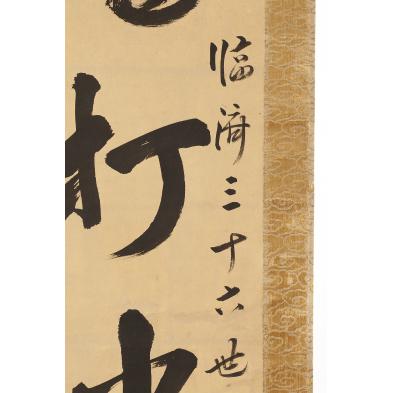 臨済三十六世
打